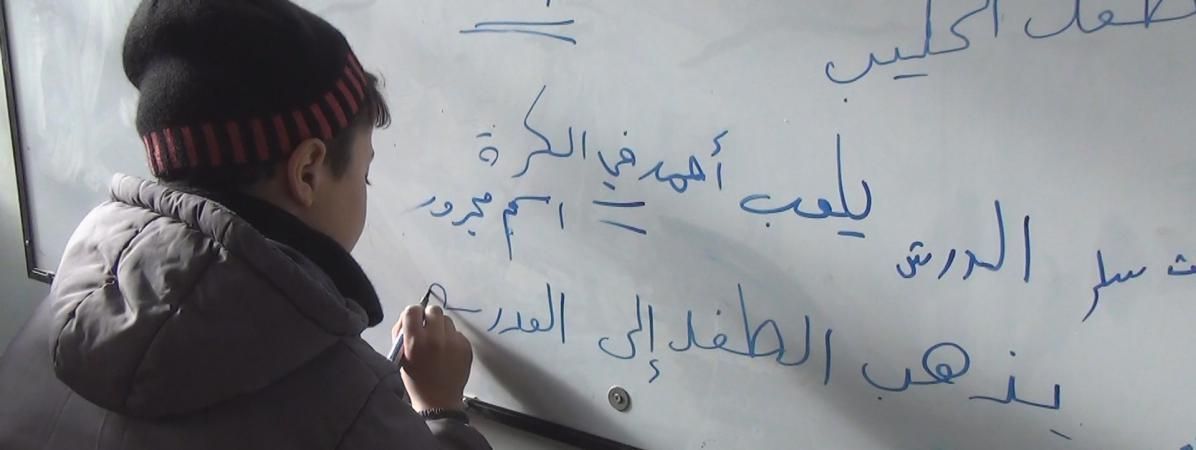 الحليب
يلعب أحمد في الكرة
اسم مجرور
الدرس
يذهب الطفل إلى المدرسة